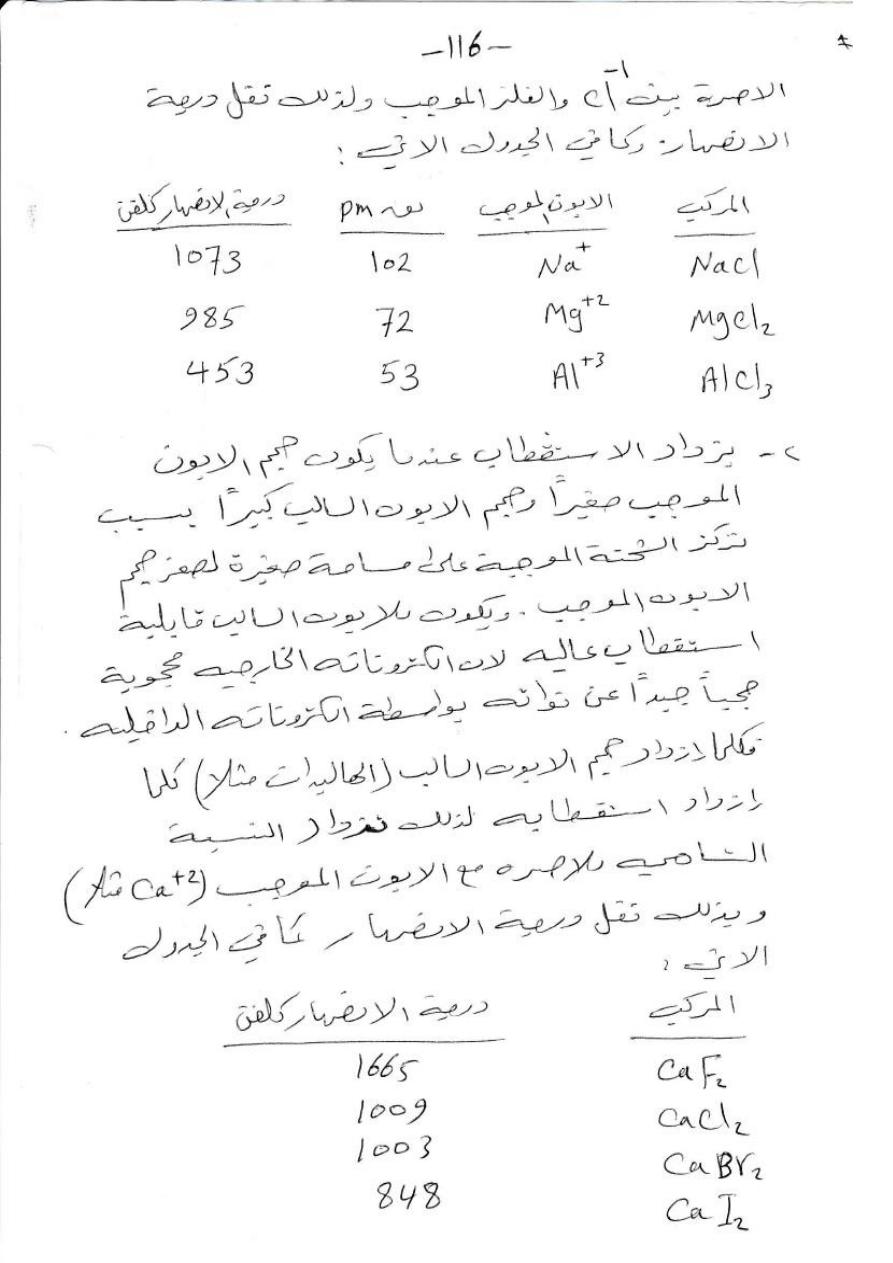 -116-
الاصرة بين Cl-1 والفلز الموجب ولذلك تقل درجة
الانصهار وكما في الجدول الاتي :
المركب الايون الموجب نق pm درجة الانصهار كلفن
NaCl Na+ 102 1073
MgCl2 Mg+2 72 985
AlCl3 Al+3 53 453
٢- يزداد الاستقطاب عندما يكون حجم الايون
الموجب صغيراً وحجم الايون السالب كبيراً بسبب
تركز الشحنة الموجبة على مساحة صغيرة لصغر حجم
الايون الموجب . ويكون للايون السالب قابلية
استقطاب عاليه لان الكتروناته الخارجيه محجوبة
حجباً جيداً عن نواته بواسطة الكتروناته الداخليه .
فكلما ازداد حجم الايون السالب (الهاليدات مثلا) كلما
ازداد استقطابه لذلك تزداد النسبة
التساهميه للاصره مع الايون الموجب (Ca+2 مثلا)
وبذلك تقل درجة الانصهار كما في الجدول
الاتي :
المركب درجة الانصهار كلفن
CaF2 1665
CaCl2 1009
CaBr2 1003
CaI2 848